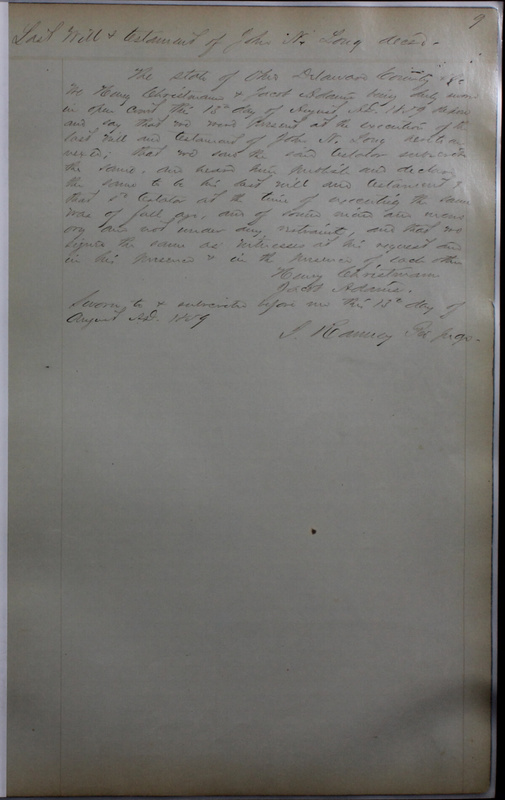 9
Last Will & testament of John N. Long decsd.
The state of Ohio Delaware County &c
We Henry Christman & Jacob Adams being duly sworn
in open court this 13th day of August A.D. 1859 depose
and say that we were present at the execution of the
last will and testament of John N. Long hereto an
nexed; that we saw the said testator subscribe
the same, and heard him publish and declare
the same to be his last will and testament, &
that sd testator at the time of executing the same
was of full age, and of sound mind and mem
ory and not under any restraint, and that we
signed the same as witnesses at his request and
in his presence & in the presence of each other
Henry Christman
Jacob Adams.
Sworn to & subscribed before me this 13th day of
August A.D. 1859
J. Ranney Pro Judge